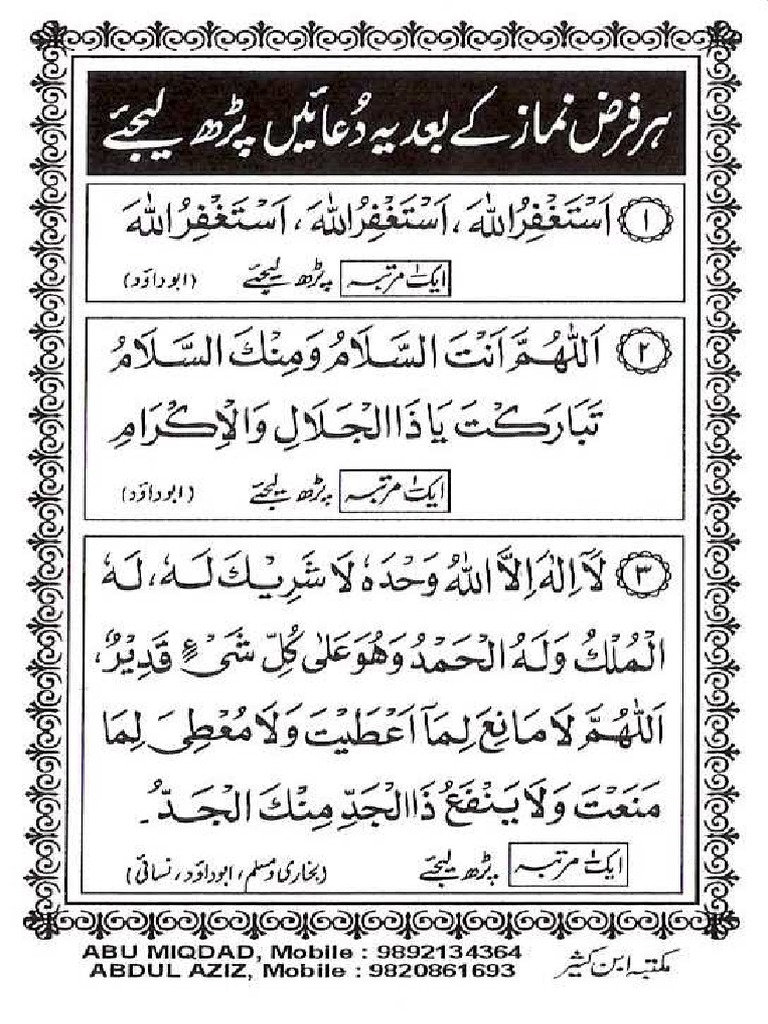 ہر فرض نماز کے بعد یہ دُعائیں پڑھ لیجئے
۱ اَسْتَغْفِرُاللّٰهَ، اَسْتَغْفِرُاللّٰهَ، اَسْتَغْفِرُاللّٰهَ
ایک مرتبہ پڑھ لیجئے (ابوداؤد)
۲ اَللّٰهُمَّ اَنْتَ السَّلَامُ وَمِنْكَ السَّلَامُ
تَبَارَكْتَ يَا ذَا الْجَلَالِ وَالْاِكْرَامِ
ایک مرتبہ پڑھ لیجئے (ابوداؤد)
۳ لَآ اِلٰهَ اِلَّا اللّٰهُ وَحْدَهٗ لَا شَرِيْكَ لَهٗ، لَهُ
الْمُلْكُ وَلَهُ الْحَمْدُ وَهُوَ عَلٰى كُلِّ شَىْءٍ قَدِيْرٌ،
اَللّٰهُمَّ لَا مَانِعَ لِمَآ اَعْطَيْتَ وَلَا مُعْطِيَ لِمَا
مَنَعْتَ وَلَا يَنْفَعُ ذَا الْجَدِّ مِنْكَ الْجَدُّ۔
ایک مرتبہ پڑھ لیجئے (بخاری ومسلم، ابوداؤد، نسائی)
ABU MIQDAD, Mobile : 9892134364
ABDUL AZIZ, Mobile : 9820861693
مکتبہ ابن کثیر